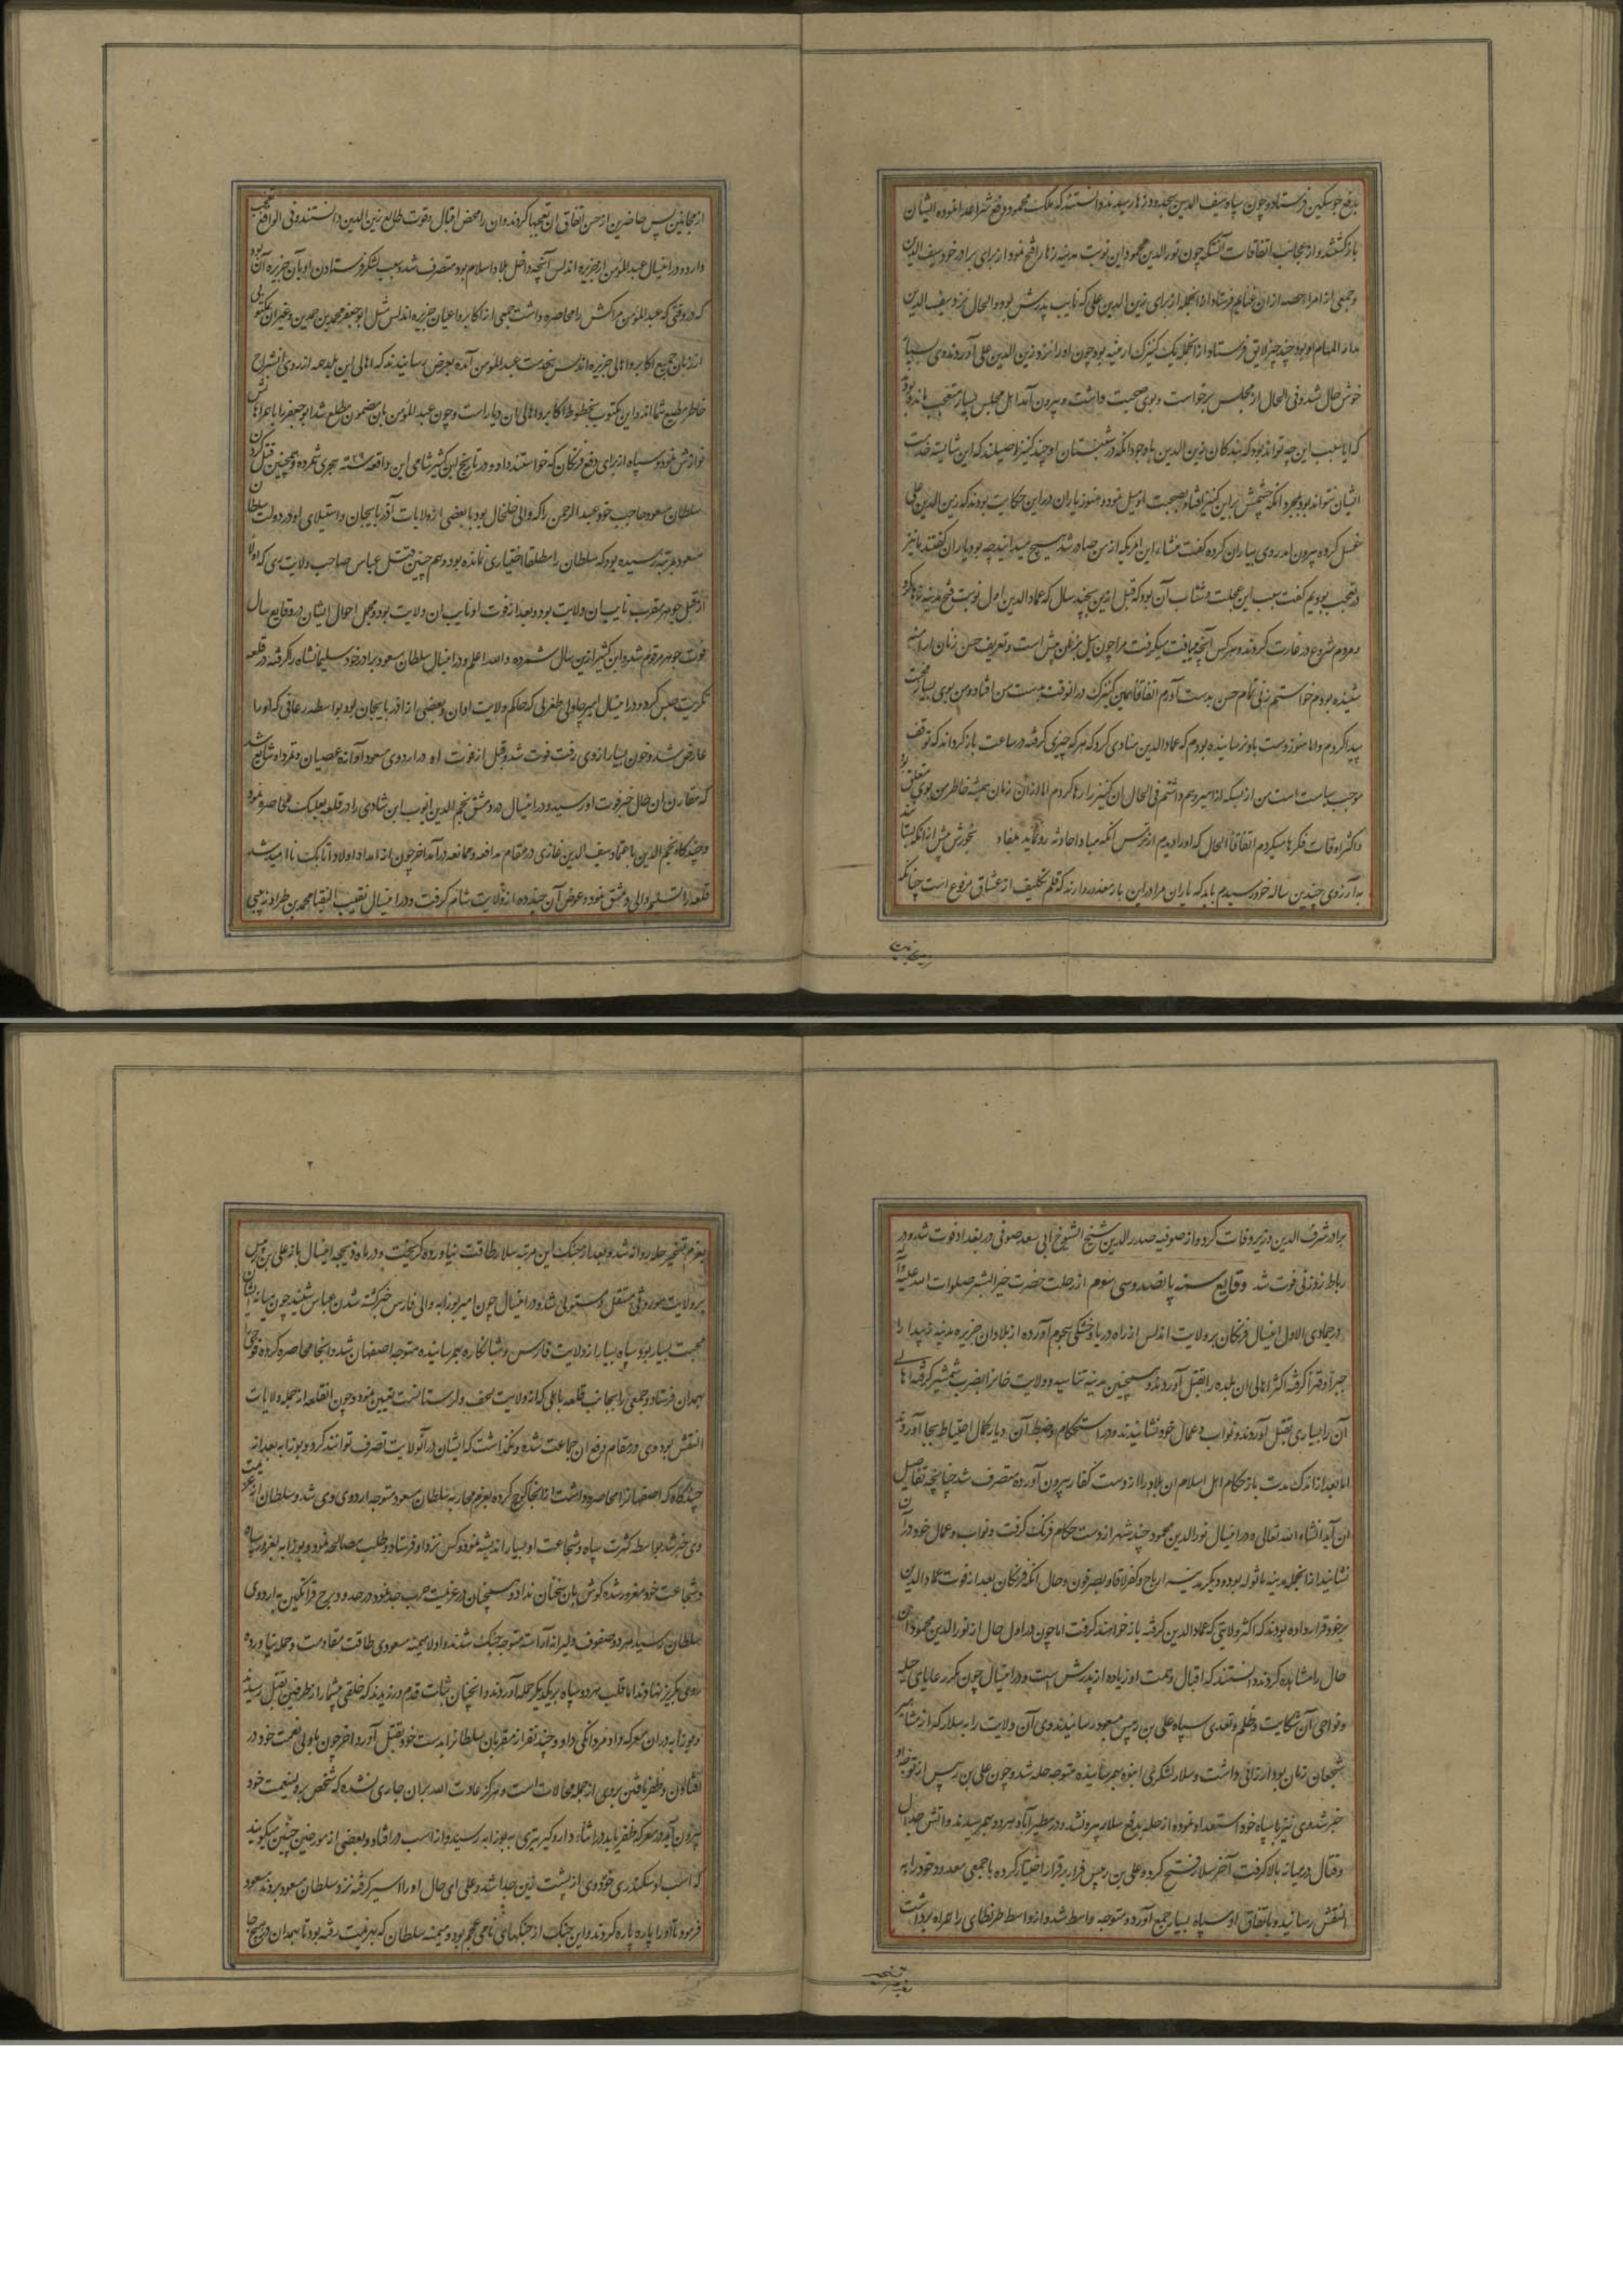 بدفع جوسکین فرستاد و چون سپاه سیف الدین بحدود زها رسیدند دانستند که ملک محمود رفع شر اعدا نموده ایشان
باز گشتند و از عجائب اتفاقات آنکه چون نورالدین محمود این نوبت مدینه زها را فتح نمود از برای برادر خود سیف الدین
و جمعی از امرا حصه از ان غنایم فرستاد از انجمله از برای زین الدین علی که نایب پدرش بود و الحال نزد سیف الدین
مدار المهام او بود چند چیز لایق فرستاد از انجمله یک کنیزک ارمنیه بود چون او را نزد زین الدین علی آوردند وی بسیار
خوش حال شد و فی الحال از مجلس برخواست و بوی صحبت داشت و بیرون آمد اهل مجلس بسیار متعجب ماندند
که ایا سبب این چه تواند بود که بندکان زین الدین باوجود آنکه در شبستان او چند کنیز اصیلند که این شایسته خدمت
ایشان نتواند بود بمجرد انکه چشمش بر این کنیز افتاد بصحبت او میل نمود و هنوز یاران در این حکایت بودند که زین الدین علی
غسل کرده بیرون امد روی بیاران کرده کفت منشاء این امریکه از من صادر شد هیچ میدانید چه بود یاران کفتند ما نیز
در تعجب بودیم کفت سبب این عجلت و شتاب آن بود که قبل ازین بچند سال که عمادالدین اول نوبت فتح مدینه زها کرد
و مردم شروع در غارت کردند و هر کس آنچه می یافت میکرفت مرا چون میل بزنان بیش است و تعریف حسن زنان ارامنه
شنیده بودم خواستم زنی تمام حسن بدست آورم اتفاقا همین کنیزک در انوقت بدست من افتاد و من بوی بسیار محبت
پیدا کردم و اما هنوز دست باو نرسانیده بودم که عمادالدین منادی کرد که هر که چیزی کرفته در ساعت باز کرداند که توقف
موجب سیاست است من از بسکه از امیر وهم داشتم فی الحال ان کنیز را رها کردم اما از ان زمان همیشه خاطر من بوی متعلق بود
و اکثر اوقات فکرها میکردم اتفاقا الحال که او را دیدم از ترس آنکه مبادا حادثه رو نماید بیفاد
به آرزوی چندین ساله خود رسیدم باید که یاران مرا در این باز معذور دارند که قلم تکلیف از عشاق مرفوع است چنانکه
از مجانین پس حاضرین از حسن اتفاق ان تعجبها کردند و ان را محض اقبال و قوت طالع زین الدین دانستند و فی الواقع تعجب
دارد و در اینسال عبدالمؤمن از جزیره اندلس آنچه داخل بلاد اسلام بود متصرف شد و سبب لشکر فرستادن او بان جزیره آن بود
که در وقتی که عبدالمؤمن مراکش را محاصره داشت جمعی از اکابر و اعیان جزیره اندلس مثل ابوجعفر محمد بن حمدین و غیر ان مکتوبی
از زبان جمیع اکابر و اهالی جزیره اندلس بخدمت عبدالمؤمن آمده بعرض رسانیدند که اهالی این بلد همه از روی انشراح
خاطر مطیع شما اند و این مکتوب بخطوط اکابر و اهالی ان دیار است و چون عبدالمؤمن بان مضمون مطلع شد ابوجعفر را با همراهانش
نوازش نمود و سپاه از برای دفع فرنکان که خواستند داد و در تاریخ ابن کثیر شامی این واقعه سنه هجری شمرده و همچنین قتل کردن
سلطان مسعود حاجب خود عبدالرحمن را که والی خلخال بود با بعضی از ولایات آذربایجان و استیلای او در دولت سلطان
مسعود بمرتبه رسیده بود که سلطان را مطلقا اختیاری نمانده بود و هم چنین قتل عباس صاحب ولایت ری که اولا
از قبل جوهر مقرب نایب ان ولایت بود و بعد از فوت او نایب ان ولایت بود و مجمل احوال ایشان در وقایع سال
فوت جوهر مرقوم شد و ابن کثیر ازین سال شمرده و الله اعلم و در اینسال سلطان مسعود برادر خود سلیمانشاه را کرفته در قلعه
تکریت حبس کرد و در اینسال امیر چاولی طغرلی که حاکم ولایت اران و بعضی از اذربایجان بود بواسطه رعافی که او را
عارض شد و خون بسیار از وی رفت فوت شد و قبل از فوت او در اردوی مسعود آوازه عصیان و تمرد او شایع شد
که مقارن ان حال خبر فوت او رسید و در اینسال در دمشق نجم الدین ایوب ابن شادی را در قلعه بعلبک محاصره نمود
و چندکاه نجم الدین باعتماد سیف الدین غازی در مقام مدافعه و ممانعه درآمد اخر چون از امداد اولاد اتابک ناامید شد
قلعه را تسلیم والی دمشق نمود و عوض آن چند ده از ولایت شام کرفت و در اینسال نقیب النقبا محمد بن طراد زینبی
برادر شرف الدین وزیر وفات کرد و از صوفیه صدرالدین شیخ الشیوخ ابی سعد صوفی در بغداد فوت شد و در
رباط زوزنی فوت شد وقایع سنه پانصد و سی سوم از رحلت حضرت خیر البشر صلوات الله علیه و آله
در جمادی الاول اینسال فرنکان بر ولایت اندلس از راه دریا و خشکی هجوم آورده از بلاد ان جزیره مدینه را
جبرا و قهرا کرفته اکثر اهالی ان بلده را بقتل آوردند و همچنین مدینه و ولایت بضرب شمشیر کرفته اهالی
آن را بسیاری بقتل آوردند و نواب و عمال خود نشانیدند و در استحکام و ضبط آن دیار کمال احتیاط بجا آوردند
اما بعد از اندک مدت باز حکام اهل اسلام ان بلاد را از دست کفار بیرون آورده متصرف شد چنانچه تفاصیل
ان آید انشاء الله تعالی و در اینسال نورالدین محمود چند شهر از دست حکام فرنک کرفت و نواب و عمال خود در آن
نشانید از انجمله مدینه ماثوله بود و دیکر مدینه ارتاح و کفرلاثا و بصرفون و حال آنکه فرنکان بعد از فوت عمادالدین
بر خود قرار داده بودند که اکثر ولایتی که عمادالدین کرفته باز خواهند کرفت اما چون در اول حال از نورالدین محمود آن
حال را مشاهده کردند دانستند که اقبال و همت او زیاده از پدرش است و در اینسال چون مکرر رعایای حله
و نواحی آن شکایت و ظلم و تعدی سپاه علی بن دبیس بمسعود رسانیدند وی آن ولایت را به سلار کرد از مشاهیر
شجعان زمان بود ارزانی داشت و سلار لشکری انبوه بهمرسانیده متوجه حله شد و چون علی بن دبیس از توجه او
خبر شد وی نیز با سپاه خود استعداد نموده از حله بدفع سلار بیرون شد و در مطیرآباد هر دو بهم رسیدند و آتش جدال
و قتال در میانه بالا کرفت آخر سلار فتح کرد و علی بن دبیس فرار بر قرار اختیار کرده با جمعی معدود خود را به
النقش رسانید و باتفاق او سپاه بسیار جمع آورد و متوجه واسط شد و از واسط طرنطای را همراه برداشت
بعزم تسخیر حله روانه شد و بعد از جنک این مرتبه سلار طاقت نیاورده کریخت و در ماه ذیحجه اینسال باز علی بن دبیس
بر ولایت موروثی مستقل و مستولی شد و در اینسال چون امیر بوزابه والی فارس خبر کشته شدن عباس شنید چون میانه ایشان
محبت بسیار بود سپاه بسیار از ولایت فارس و شبانکاره بهمرسانیده متوجه اصفهان شد و انجا محاصره کرده فوجی
بهمدان فرستاد و جمعی را بجانب قلعه ماهکی که از ولایت لحف و لرستانست تعیین نمود و چون انقلعه از جمله ولایات
النقش بود وی در مقام دفع ان جماعت شده و نکذاشت که ایشان در آنولایت تصرف توانند کرد و بوزابه بعد از
چندکاه که اصفهان را محاصره داشت از انجا کوچ کرده بعزم محاربه سلطان مسعود متوجه اردوی وی شد و سلطان از عزیمت
وی خبر شد بواسطه کثرت سپاه و شجاعت او بسیار اندیشه نمود و کس نزد او فرستاد و طلب مصالحه نمود و بوزابه بغرور سپاه
و شجاعت خود مغرور شده کوش بان سخنان نداد و همچنان در عزیمت حرب جد نمود در حدود مرج قراتکین به اردوی
سلطان رسید و هر دو صفوف دلیرانه آراسته متوجه جنک شدند و اولا میمنه مسعودی طاقت مقاومت و حمله نیاورده
روی بکریز نهادند اما قلب هر دو سپاه بر یکدیکر حمله آوردند و انچنان ثبات قدم ورزیدند که خلقی بیشمار از طرفین بقتل رسیدند
و بوزابه در ان معرکه داد مردانکی داد و چند نفر از مقربان سلطان را بدست خود بقتل آورد و اخر چون با ولی نعمت خود در
افتادن و ظفر یافتن بر وی از جمله محالات است و هرکز عادت الله بر ان جاری نشده که شخص بر ولینعمت خود
بیرون آید و در معرکه ظفر یابد در اثناء داروکیر تیری به بوزابه رسید و از اسب در افتاد و بعضی از مورخین چنین میکویند
که اسب او سکندری خورد و وی از پشت زین جدا شد و علی ای حال او را اسیر کرفته نزد سلطان مسعود بردند مسعود
فرمود تا او را پاره پاره کردند و این جنک از جنکهای نامی عجم بود و میمنه سلطان که بهزیمت رفته بود تا بهمدان در هیچ جا